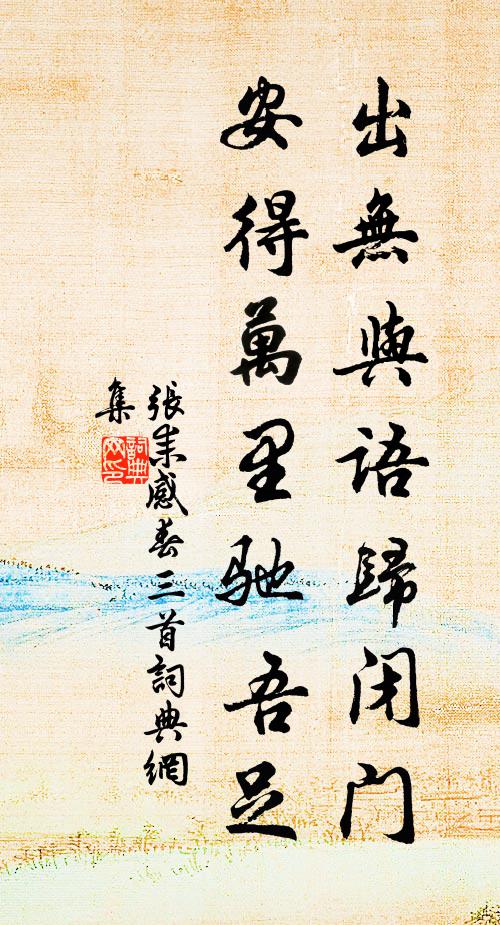 出無與語歸闭门
安得萬里馳吾足
張耒感春三首詞典網
集
詞典
网印